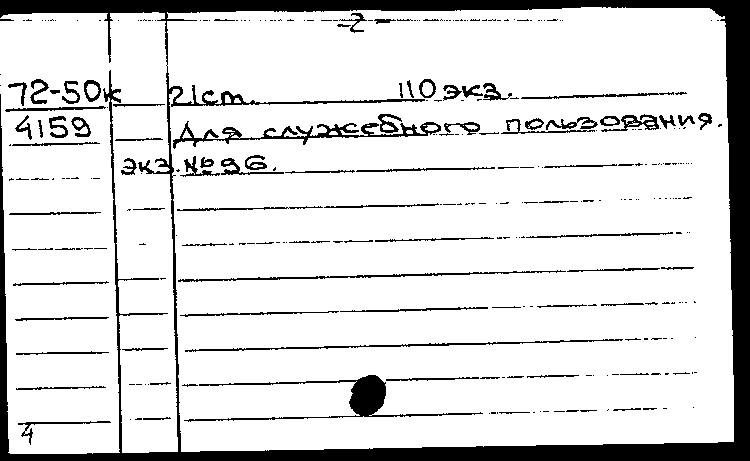 -2-
72-50к 21cm. 110 экз.
4159 Для служебного пользования.
экз. №96.
4